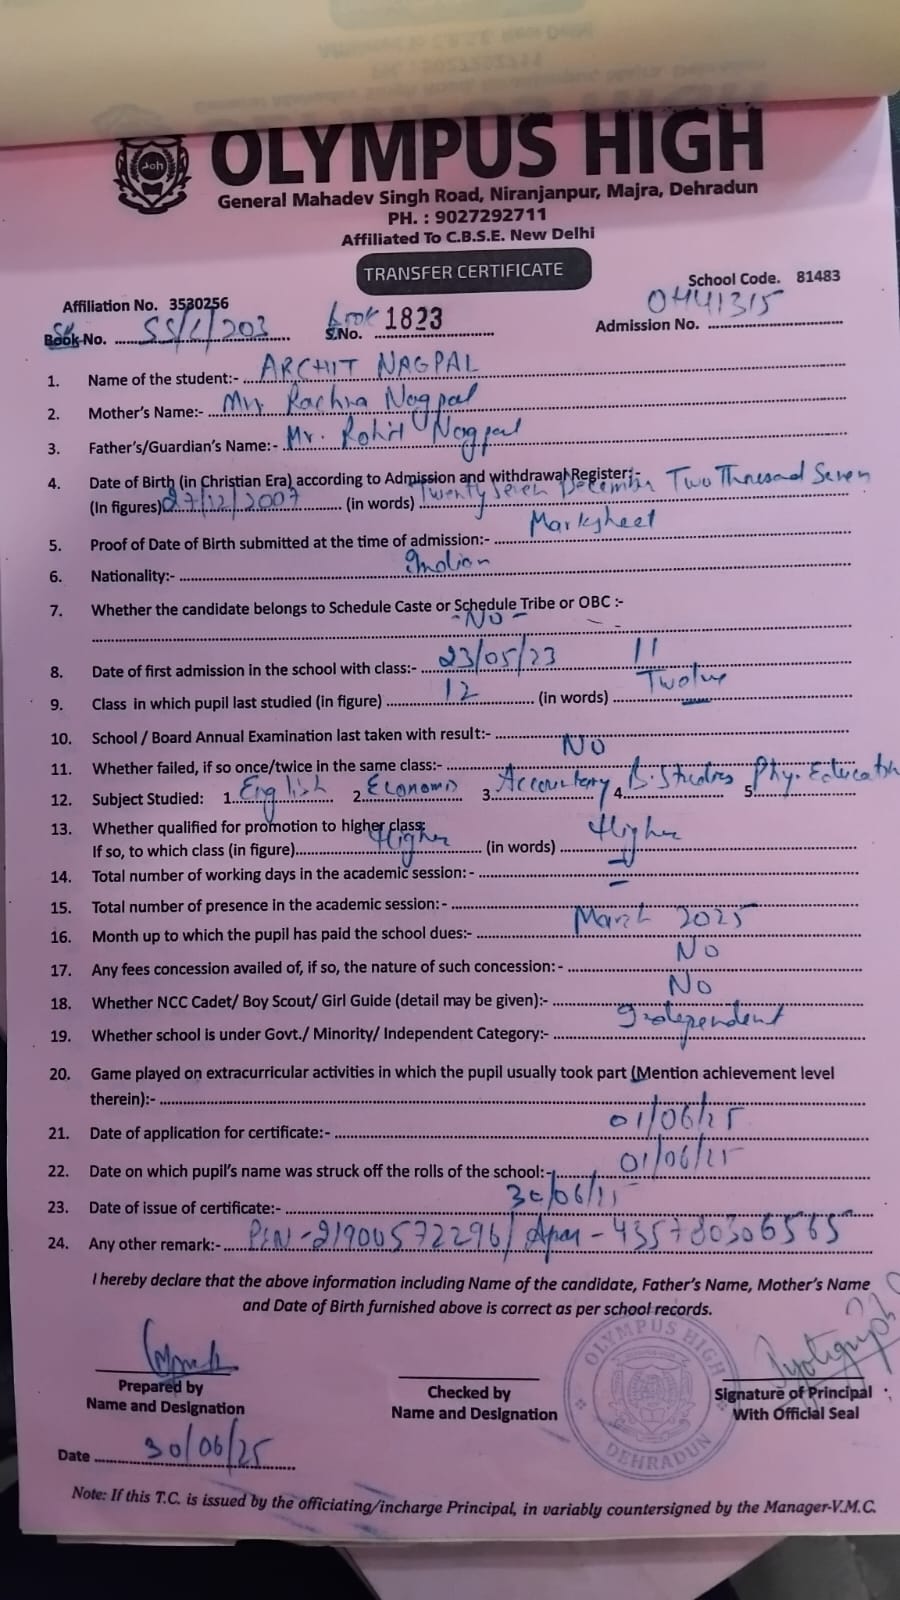 OLYMPUS HIGH
General Mahadev Singh Road, Niranjanpur, Majra, Dehradun
PH. : 9027292711
Affiliated To C.B.S.E. New Delhi
TRANSFER CERTIFICATE
School Code. 81483
Affiliation No. 3530256
Book No. SS/C/203 Book S.No. 1823 Admission No. 0441315
1. Name of the student:- ARCHIT NAGPAL
2. Mother's Name:- Mrs Rachna Nagpal
3. Father's/Guardian's Name:- Mr. Rohit Nagpal
4. Date of Birth (in Christian Era) according to Admission and withdrawal Register:-
(In figures) 27/12/2007 (in words) Twenty Seven December Two Thousad Seven
5. Proof of Date of Birth submitted at the time of admission:- Marksheet
6. Nationality:- Indian
7. Whether the candidate belongs to Schedule Caste or Schedule Tribe or OBC :-
- NO -
8. Date of first admission in the school with class:- 23/05/23 11
9. Class in which pupil last studied (in figure) 12 (in words) Twelve
10. School / Board Annual Examination last taken with result:-
11. Whether failed, if so once/twice in the same class:- NO
12. Subject Studied: 1. English 2. Economis 3. Accountary 4. B. Studies 5. Phy. Education
13. Whether qualified for promotion to higher class:
If so, to which class (in figure) Higher (in words) Higher
14. Total number of working days in the academic session: - –
15. Total number of presence in the academic session: - –
16. Month up to which the pupil has paid the school dues:- March 2025
17. Any fees concession availed of, if so, the nature of such concession:- No
18. Whether NCC Cadet/ Boy Scout/ Girl Guide (detail may be given):- No
19. Whether school is under Govt./ Minority/ Independent Category:- Independent
20. Game played on extracurricular activities in which the pupil usually took part (Mention achievement level
therein):-
21. Date of application for certificate:- 01/06/25
22. Date on which pupil's name was struck off the rolls of the school:- 01/06/25
23. Date of issue of certificate:- 30/06/25
24. Any other remark:- PEN - 21900572296/ Apar - 435780306565
I hereby declare that the above information including Name of the candidate, Father's Name, Mother's Name
and Date of Birth furnished above is correct as per school records.
OLYMPUS HIGH
DEHRADUN
Prepared by
Name and Designation
Checked by
Name and Designation
Signature of Principal
With Official Seal
Date 30/06/25
Note: If this T.C. is issued by the officiating/incharge Principal, in variably countersigned by the Manager-V.M.C.